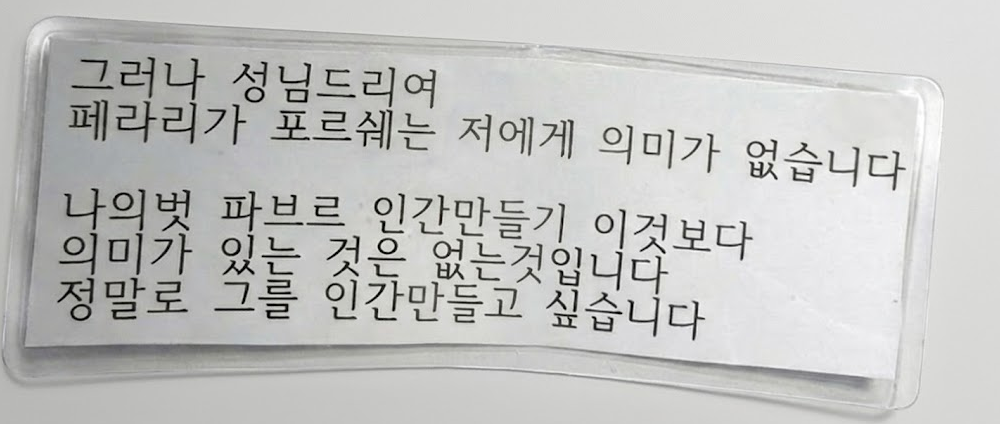 그러나 성님드리여
페라리가 포르쉐는 저에게 의미가 없습니다
나의벗 파브르 인간만들기 이것보다
의미가 있는 것은 없는것입니다
정말로 그를 인간만들고 싶습니다